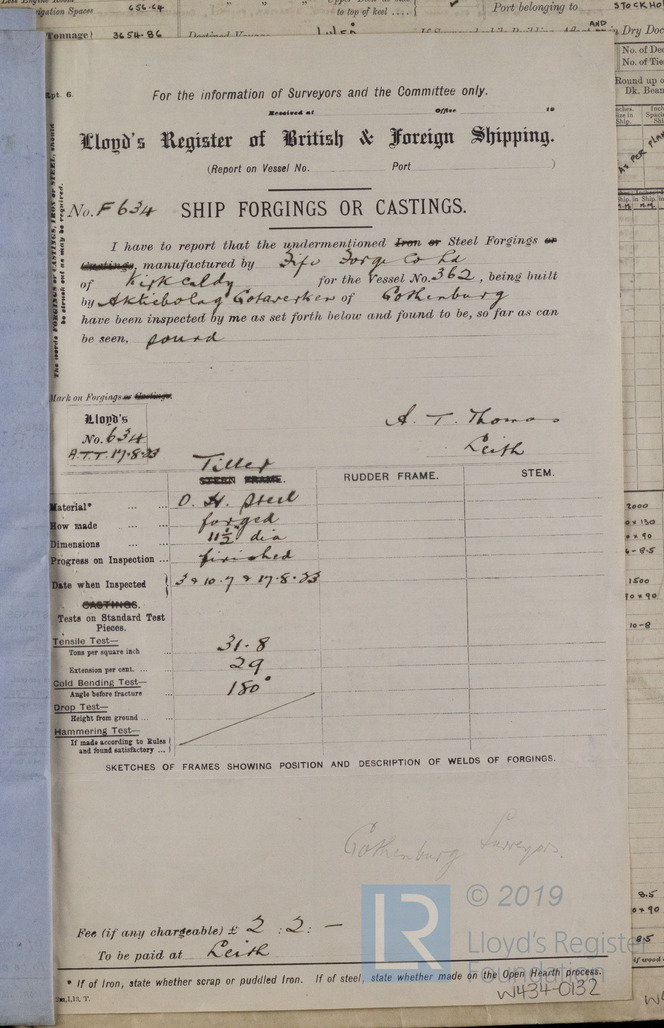 656.64
igation Spaces
to top of keel ....
Port belonging to
STOCKHO
Tonnage
3654.86
AND
in Dry Doc
No. of Dec
No. of Tie
Round up o
Dk. Bean
Rpt. 6.
For the information of Surveyors and the Committee only.
Received at Office 19
Lloyd's Register of British & Foreign Shipping.
(Report on Vessel No. Port )
The words FORGINGS or CASTINGS, IRON or STEEL, should be struck out as may be required.
No. F 634 SHIP FORGINGS OR CASTINGS.
I have to report that the undermentioned Iron or Steel Forgings or
Castings, manufactured by Fife Forge Co Ld
of Kirkcaldy for the Vessel No. 362, being built
by Aktiebolag Gotaverken of Gothenburg
have been inspected by me as set forth below and found to be, so far as can
be seen, sound
Mark on Forgings or Castings.
Lloyd's
No. 634
A.T.T. 17.8.23
A. T. Thomas
Leith
Tiller
STERN FRAME.
RUDDER FRAME.
STEM.
Material* ... ... O. H. Steel
How made ... forged
Dimensions ... 11½" dia
Progress on Inspection ... finished
Date when Inspected 3 & 10.7 & 17.8.23
CASTINGS.
Tests on Standard Test
Pieces.
Tensile Test—
Tons per square inch 31.8
Extension per cent. ... 29
Cold Bending Test—
Angle before fracture ... 180°
Drop Test—
Height from ground ... ...
Hammering Test—
If made according to Rules
and found satisfactory ...
SKETCHES OF FRAMES SHOWING POSITION AND DESCRIPTION OF WELDS OF FORGINGS.
Gothenburg Surveyors.
Fee (if any chargeable) £ 2 : 2 : —
To be paid at Leith
* If of Iron, state whether scrap or puddled Iron. If of steel, state whether made on the Open Hearth process.
W434-0132
LR
© 2019
Lloyd's Register
Foundation
2000
1500
10-8
8.5
8.5